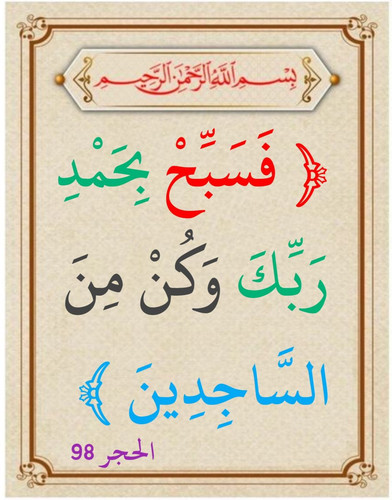 بِسْمِ اللَّهِ الرَّحْمَٰنِ الرَّحِيمِ
﴿ فَسَبِّحْ بِحَمْدِ
رَبِّكَ وَكُنْ مِنَ
السَّاجِدِينَ ﴾
الحجر 98